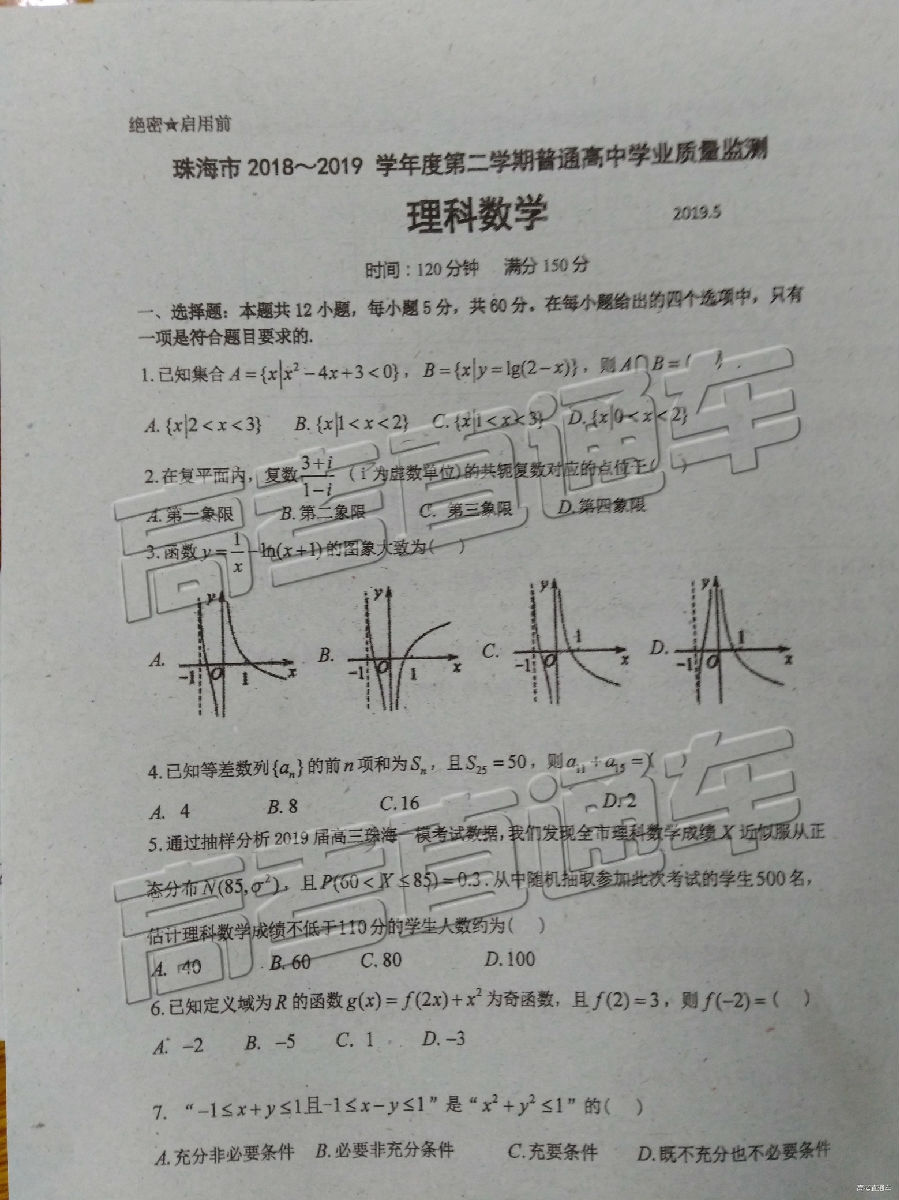 绝密★启用前
珠海市 2018～2019 学年度第二学期普通高中学业质量监测
理科数学 2019.5
时间：120 分钟 满分 150 分
一、选择题：本题共 12 小题，每小题 5 分，共 60 分。在每小题给出的四个选项中，只有
一项是符合题目要求的.
1.已知集合 A={x|x²−4x+3<0}，B={x|y=lg(2−x)}，则 A∩B=( ) .
A.{x|2<x<3} B.{x|1<x<2} C.{x|1<x<3} D.{x|0<x<2}
2.在复平面内，复数 (3+i)/(1−i)（i 为虚数单位)的共轭复数对应的点位于( )
A.第一象限 B.第二象限 C. 第三象限 D.第四象限
3.函数 y=1/x−ln(x+1) 的图象大致为( )
A. y −1 O 1 x B. y −1 O 1 x C. y −1 O 1 x D. y −1 O 1 x
4.已知等差数列{aₙ}的前 n 项和为 Sₙ，且 S₂₅=50，则 a₁₁+a₁₅=( )
A. 4 B. 8 C.16 D. 2
5.通过抽样分析 2019 届高三珠海一模考试数据，我们发现全市理科数学成绩 X 近似服从正
态分布 N(85,σ²)，且 P(60<X≤85)=0.3 .从中随机抽取参加此次考试的学生 500 名，
估计理科数学成绩不低于110 分的学生人数约为( )
A. 40 B. 60 C. 80 D.100
6.已知定义域为 R 的函数 g(x)=f(2x)+x² 为奇函数，且 f(2)=3，则 f(−2)=( )
A. −2 B. −5 C. 1 D. −3
7. “−1≤x+y≤1且−1≤x−y≤1”是“x²+y²≤1”的( )
A.充分非必要条件 B.必要非充分条件 C.充要条件 D.既不充分也不必要条件
高考直通车
高考直通车
高考直通车